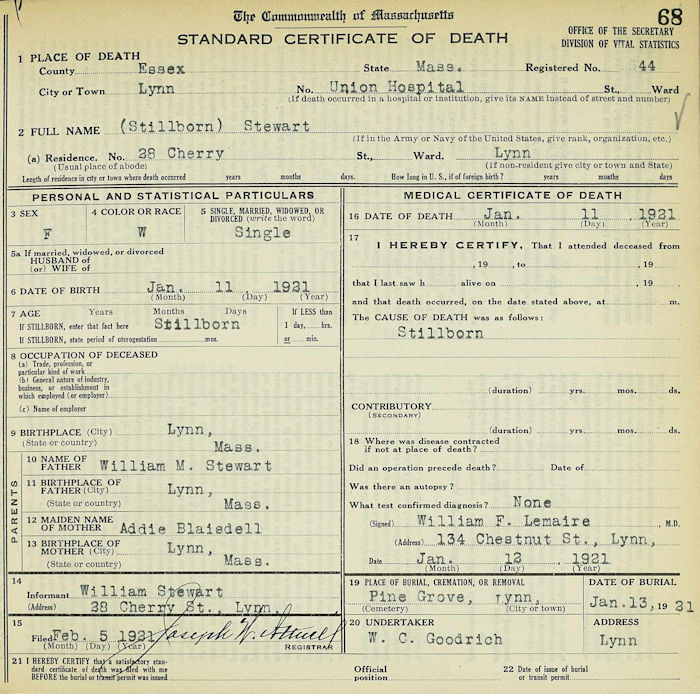 The Commonwealth of Massachusetts
68
STANDARD CERTIFICATE OF DEATH
OFFICE OF THE SECRETARY
DIVISION OF VITAL STATISTICS
1 PLACE OF DEATH
County Essex State Mass. Registered No. 44
City or Town Lynn No. Union Hospital St., Ward
(If death occurred in a hospital or institution, give its NAME instead of street and number)
2 FULL NAME (Stillborn) Stewart
(If in the Army or Navy of the United States, give rank, organization, etc.)
(a) Residence. No. 28 Cherry St., Ward. Lynn
(Usual place of abode) (If non-resident give city or town and State)
Length of residence in city or town where death occurred years months days How long in U. S., if of foreign birth? years months days
PERSONAL AND STATISTICAL PARTICULARS
3 SEX 4 COLOR OR RACE 5 SINGLE, MARRIED, WIDOWED, OR
DIVORCED (write the word)
F W Single
5a If married, widowed, or divorced
HUSBAND of
(or) WIFE of
6 DATE OF BIRTH Jan. 11, 1921
(Month) (Day) (Year)
7 AGE Years Months Days If LESS than
If STILLBORN, enter that fact here Stillborn 1 day, hrs.
If STILLBORN, state period of uterogestation mos. or min.
8 OCCUPATION OF DECEASED
(a) Trade, profession, or
particular kind of work
(b) General nature of industry,
business, or establishment in
which employed (or employer)
(c) Name of employer
9 BIRTHPLACE (City) Lynn,
(State or country) Mass.
PARENTS
10 NAME OF
FATHER William M. Stewart
11 BIRTHPLACE OF
FATHER (City) Lynn,
(State or country) Mass.
12 MAIDEN NAME
OF MOTHER Addie Blaisdell
13 BIRTHPLACE OF
MOTHER (City) Lynn,
(State or country) Mass.
14
Informant William Stewart
(Address) 28 Cherry St., Lynn.
15
Filed Feb. 5 1921 Joseph W. Attwill
(Month) (Day) (Year) REGISTRAR
MEDICAL CERTIFICATE OF DEATH
16 DATE OF DEATH Jan. 11, 1921
(Month) (Day) (Year)
17
I HEREBY CERTIFY, That I attended deceased from
, 19 , to , 19
that I last saw h alive on , 19
and that death occurred, on the date stated above, at m.
The CAUSE OF DEATH was as follows:
Stillborn
(duration) yrs. mos. ds.
CONTRIBUTORY
(SECONDARY)
(duration) yrs. mos. ds.
18 Where was disease contracted
if not at place of death?
Did an operation precede death? Date of
Was there an autopsy?
What test confirmed diagnosis? None
(Signed) William F. Lemaire, M.D.
(Address) 134 Chestnut St., Lynn,
Date Jan. 12, 1921
(Month) (Day) (Year)
19 PLACE OF BURIAL, CREMATION, OR REMOVAL DATE OF BURIAL
Pine Grove, Lynn, Jan.13, 1921
(Cemetery) (City or town)
20 UNDERTAKER ADDRESS
W. C. Goodrich Lynn
21 I HEREBY CERTIFY that a satisfactory stan-
dard certificate of death was filed with me
BEFORE the burial or transit permit was issued
Official
position
22 Date of issue of burial
or transit permit